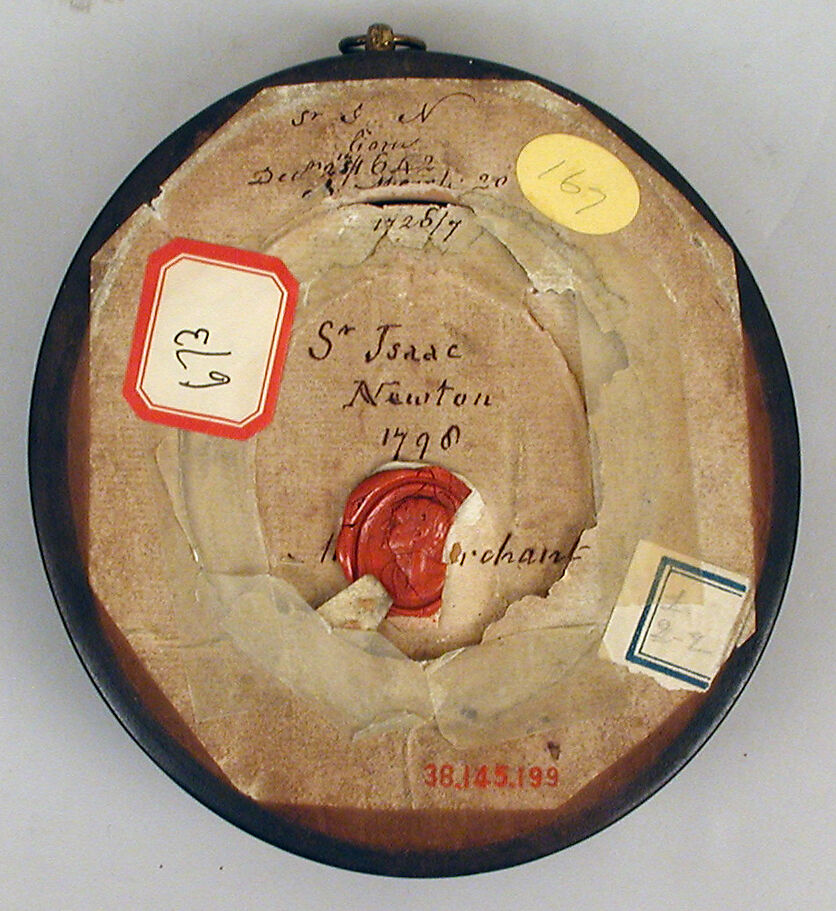 Sr I N
born
Decr 25 1642
March 20
1726/7
167
673
Sr Isaac
Newton
1798
rchant
38.145.199